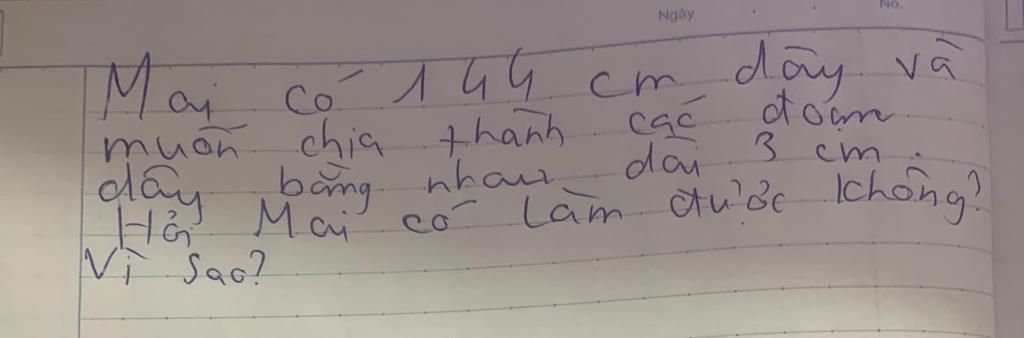 Ngày
No.
Mai có 144 cm dây và
muốn chia thành các đoạn
dây bằng nhau dài 3 cm.
Hỏi Mai có làm được không?
Vì sao?